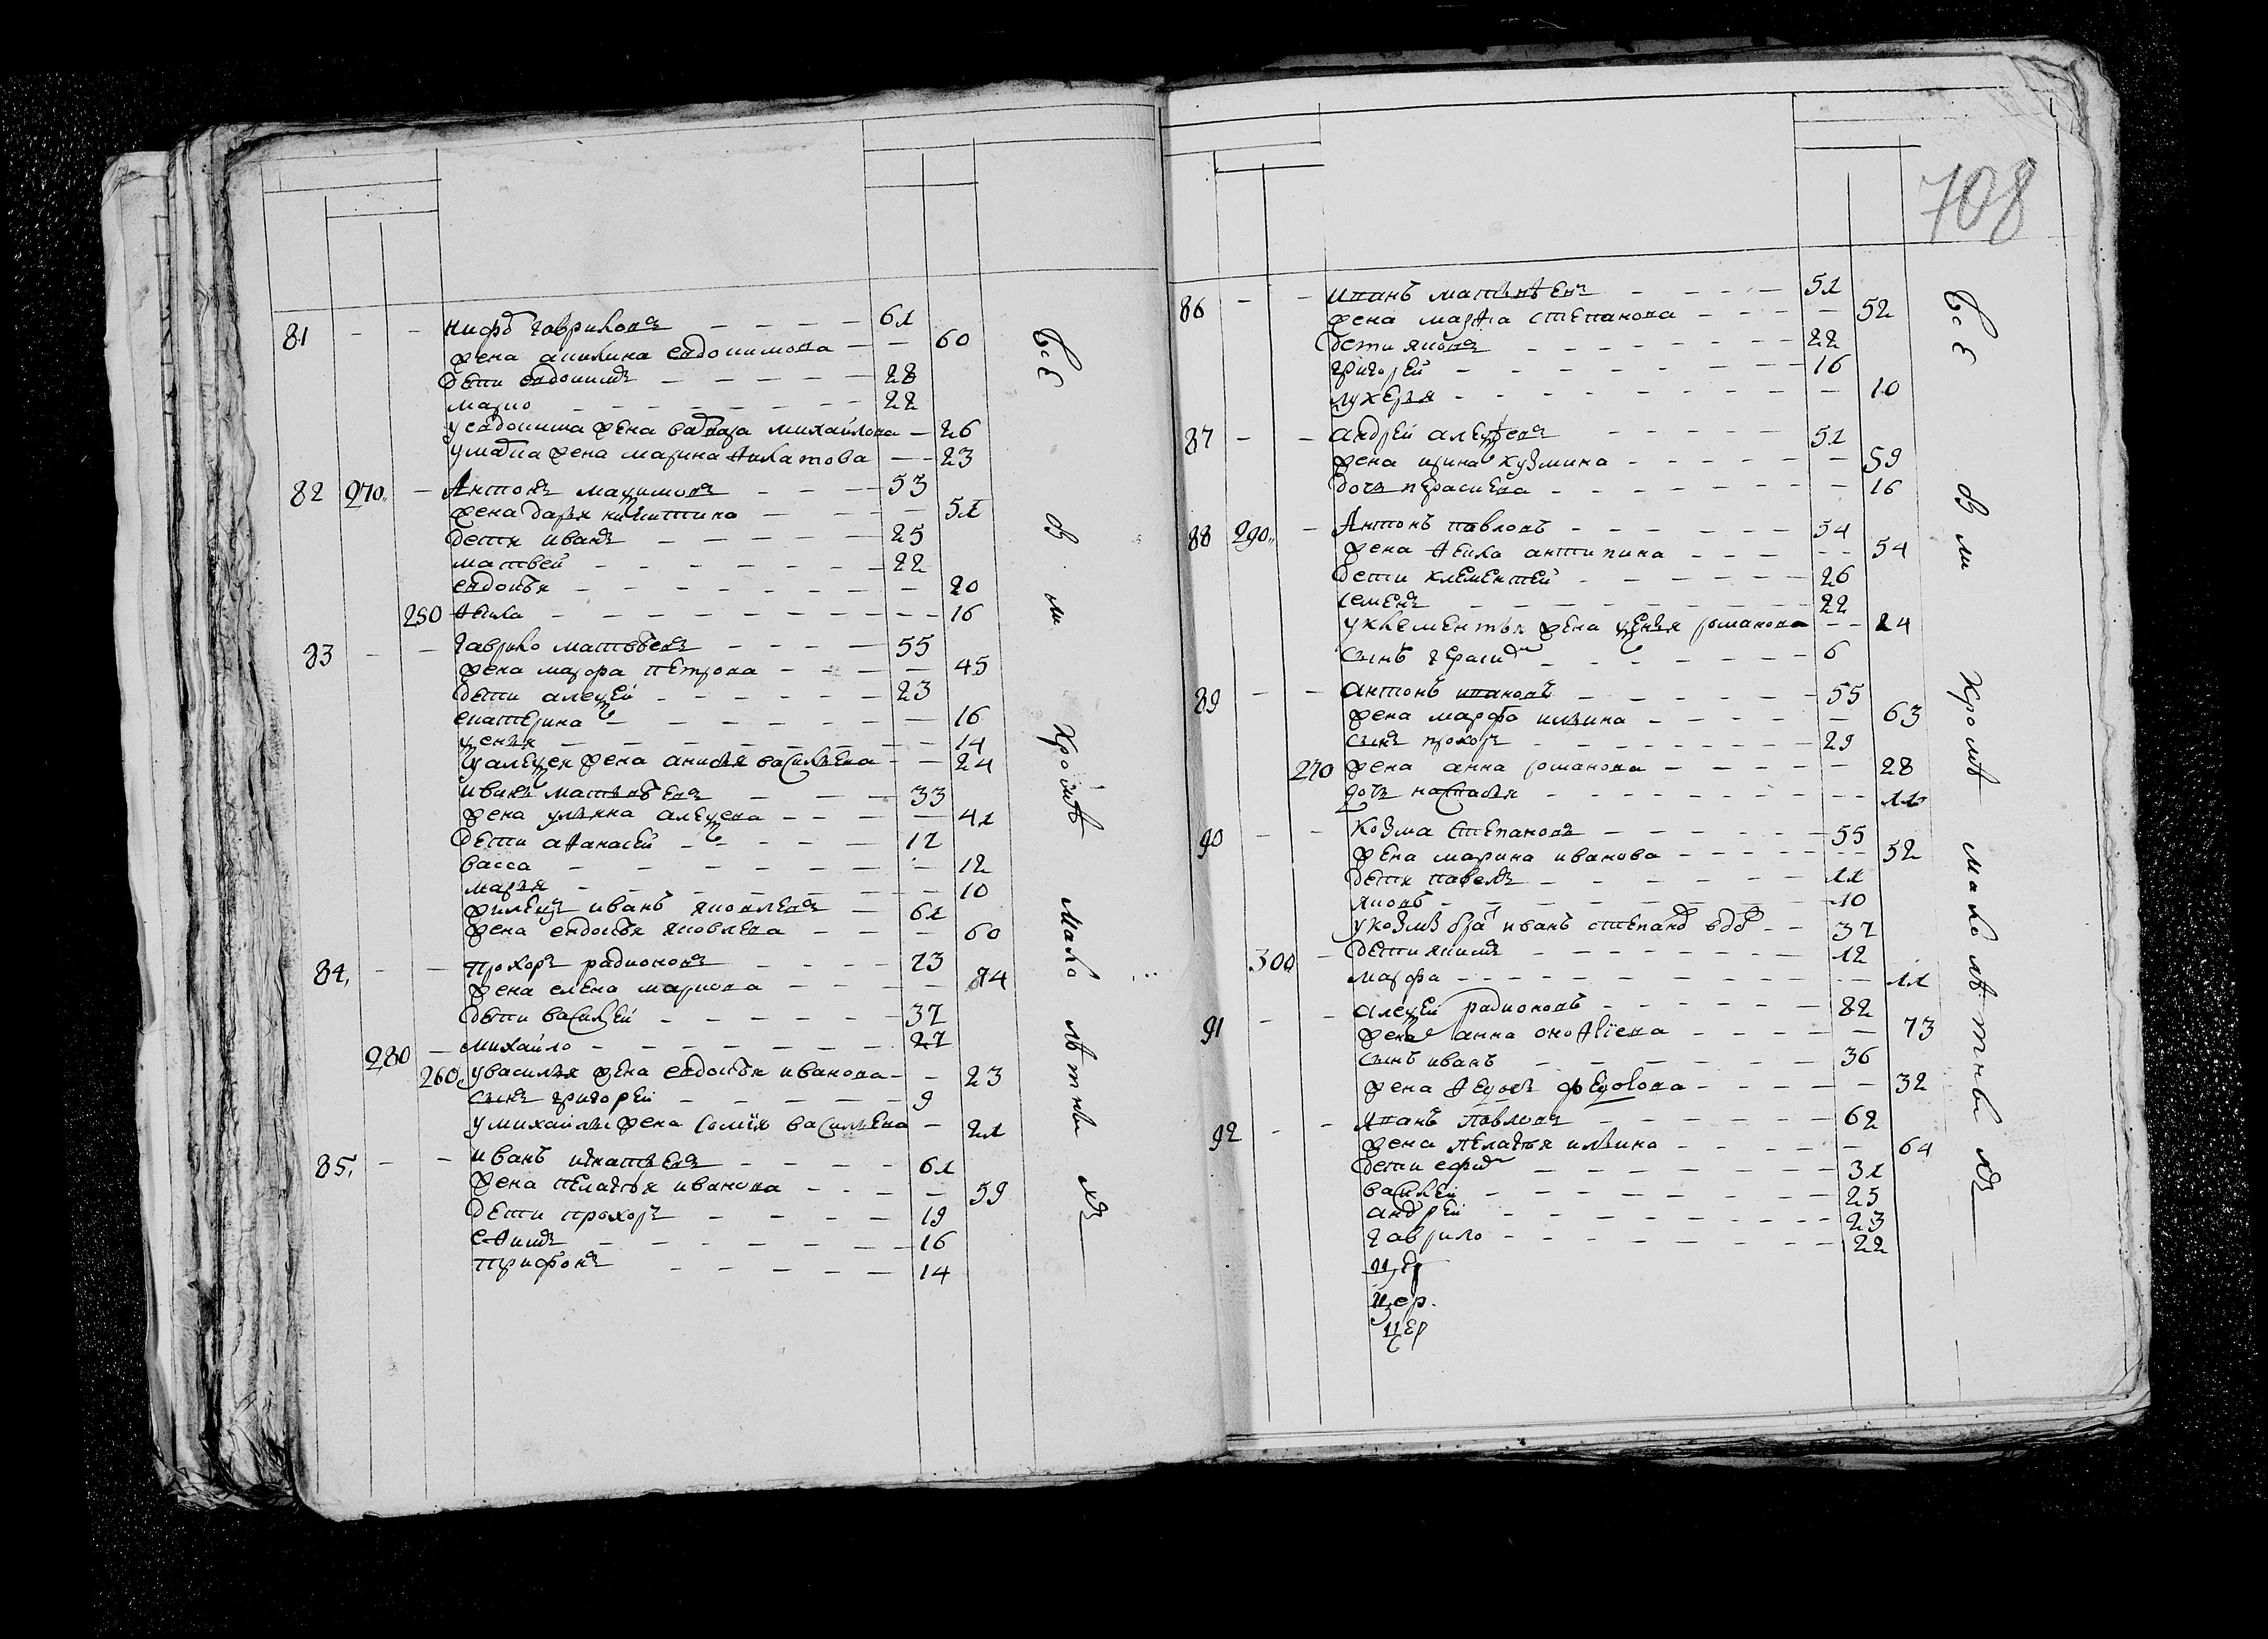 708
81 — — никфо гавриловъ — 61
жена акилина евдокимова — 60
дети евдокимъ — 28
марко — 22
у евдокима жена варвара михайлова — 26
у марка жена марина филатова — 23
82 270 — Антонъ максимовъ — 53
жена дарья никитина — 51
дети иванъ — 25
матвей — 22
евдокья — 20
250 фекла — 16
83 — — гаврило матвеевъ — 55
жена марфа петрова — 45
дети алексей — 23
екатерина — 16
ксенья — 14
у алексея жена анисья васильева — 24
иванъ матвѣевъ — 33
жена ульяна алексеева — 41
дети афанасей — 12
васса — 12
марья — 10
жилецъ иванъ яковлевъ — 61
жена евдокья яковлева — 60
84, — — прохоръ радионовъ — 73
жена елена маркова — 74
дети василей — 37
280 — михайло — 27
260 у василья жена евдокья иванова — 23
сынъ григорей — 9
у михайлы жена софия васильева — 21
85, — — иванъ игнатьевъ — 61
жена пелагья иванова — 59
дети прохоръ — 19
ефимъ — 16
трифонъ — 14
Все въ м кромѣ малолѣтныхъ
86 — — иванъ матвѣевъ — 51
жена марфа степанова — 52
дети яковъ — 22
григорей — 16
лукерья — 10
87 — — андрей алексеевъ — 51
жена ирина кузмина — 59
дочь параскева — 16
88 290 — Антонъ павловъ — 54
жена фекла антипина — 54
дети клементей — 26
семенъ — 22
у клементья жена ксенья романова — 24
сынъ герасим — 6
89 — — антонъ ивановъ — 55
жена марфа ильина — 63
сынъ прохоръ — 29
270 жена анна романова — 28
дочь настасья — 11
90 — — козма степановъ — 55
жена марина иванова — 52
дети павелъ — 11
яковъ — 10
у козмы бра иванъ степанов вдо — 37
300 — дети якимъ — 12
марфа — 11
91 — — алексей радионовъ — 82
жена анна онофриева — 73
сынъ иванъ — 36
жена федосья федосова — 32
92 — — иванъ павловъ — 62
жена пелагья ильина — 64
дети ефим — 31
василей — 25
андрей — 23
гаврило — 22
цер.
цер
Все въ м кромѣ малолѣтныхъ